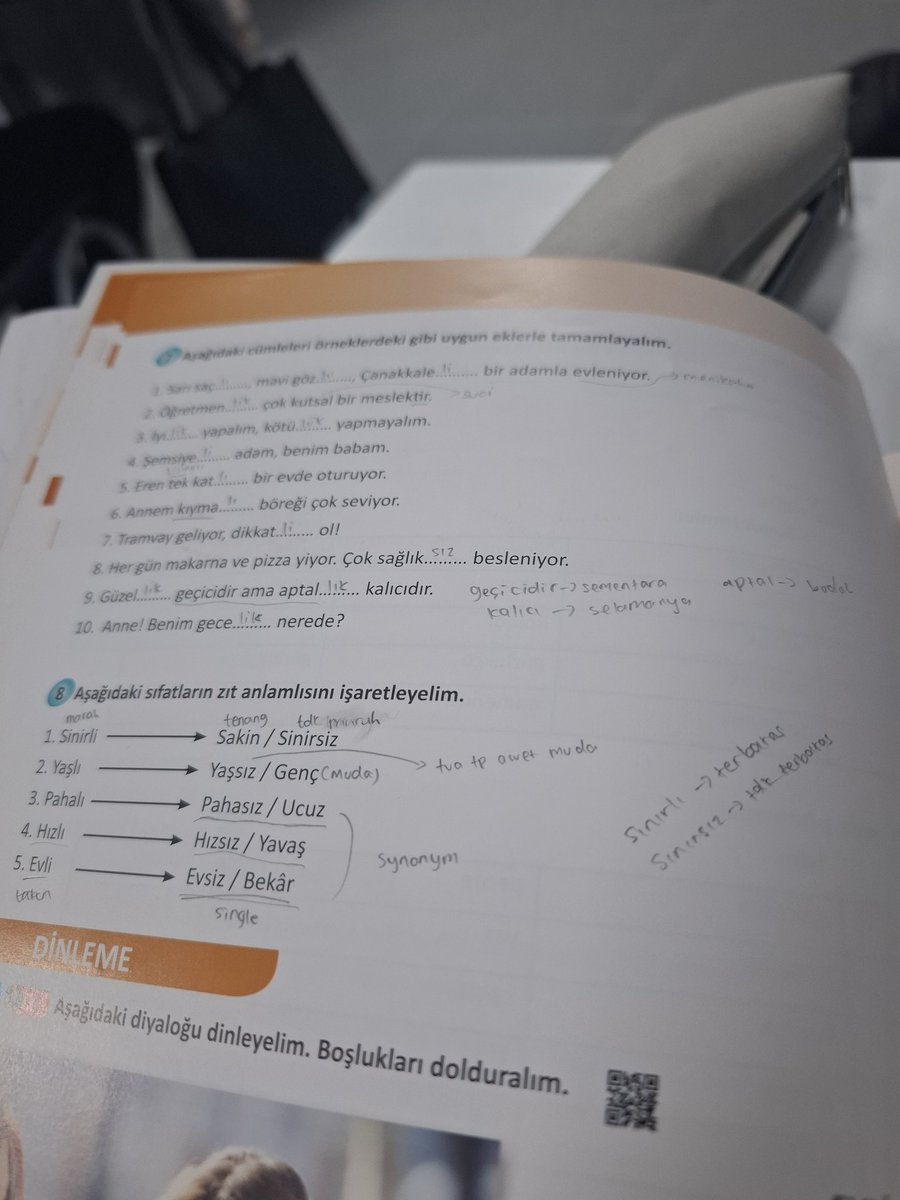 Aşağıdaki cümleleri örneklerdeki gibi uygun eklerle tamamlayalım.
1. Sarı saç..lı......, mavi göz..lü....., Çanakkale..li...... bir adamla evleniyor. →
2. Öğretmen..lik.... çok kutsal bir meslektir. → suci
3. İyi..lik.... yapalım, kötü..lük.... yapmayalım.
4. Şemsiye..li..... adam, benim babam.
5. Eren tek kat..lı..... bir evde oturuyor.
6. Annem kıyma..lı..... böreği çok seviyor.
7. Tramvay geliyor, dikkat..li..... ol!
8. Her gün makarna ve pizza yiyor. Çok sağlık..sız..... besleniyor.
9. Güzel..lik.... geçicidir ama aptal..lık.... kalıcıdır. geçicidir → sementara aptal → bodoh
kalıcı → selamanya
10. Anne! Benim gece..lik.... nerede?
8 Aşağıdaki sıfatların zıt anlamlısını işaretleyelim.
marah tenang tdk
1. Sinirli → Sakin / Sinirsiz
2. Yaşlı → Yaşsız / Genç (muda) → tua tp awet muda
3. Pahalı → Pahasız / Ucuz
4. Hızlı → Hızsız / Yavaş
synonym
5. Evli → Evsiz / Bekâr
single
sınırlı → terbatas
sınırsız → tdk terbatas
DİNLEME
Aşağıdaki diyaloğu dinleyelim. Boşlukları dolduralım.